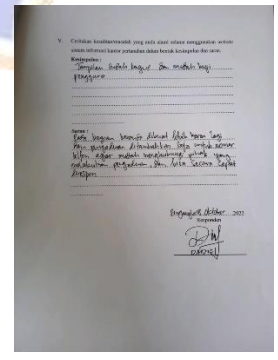 V. Ceritakan kesulitan/masalah yang anda alami selama menggunakan website
sistem informasi kantor pertanahan dalam bentuk kesimpulan dan saran.
Kesimpulan :
Tampilan sudah bagus dan mudah bagi
pengguna
Saran :
Pada bagian beranda dibuat lebih keren lagi
dan pengaduan ditambahkan juga untuk nomor
agar mudah menghubungi pihak yang
melakukan pengaduan, dan bisa secara cepat
direspon
Oktober 2022
Responden